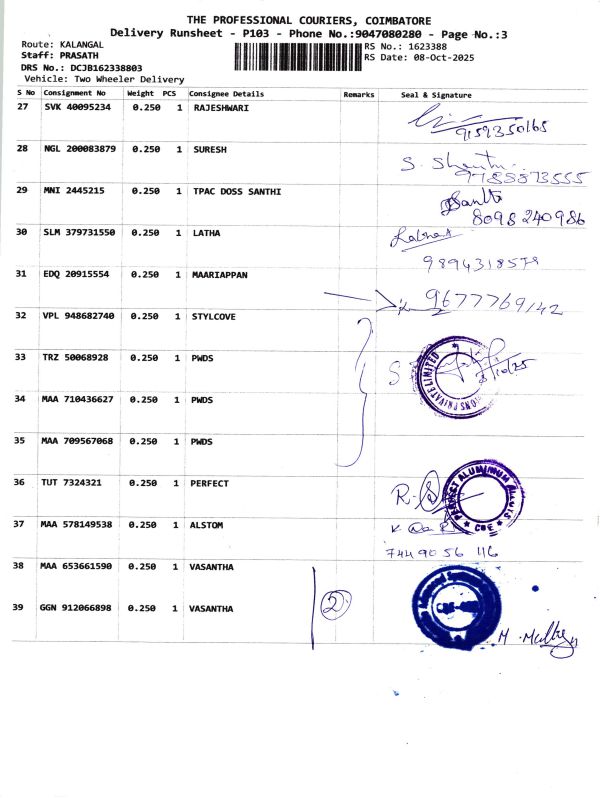 THE PROFESSIONAL COURIERS, COIMBATORE
Delivery Runsheet - P103 - Phone No.:9047080280 - Page No.:3
Route: KALANGAL
RS No.: 1623388
Staff: PRASATH
RS Date: 08-Oct-2025
DRS No.: DCJB162338803
Vehicle: Two Wheeler Delivery
S No Consignment No Weight PCS Consignee Details Remarks Seal & Signature
27 SVK 40095234 0.250 1 RAJESHWARI
9159350165
28 NGL 200083879 0.250 1 SURESH
9788873555
29 MNI 2445215 0.250 1 TPAC DOSS SANTHI
8098240986
30 SLM 379731550 0.250 1 LATHA
31 EDQ 20915554 0.250 1 MAARIAPPAN
9677769142
32 VPL 948682740 0.250 1 STYLCOVE
33 TRZ 50068928 0.250 1 PWDS
PRIVATE LIMITED
34 MAA 710436627 0.250 1 PWDS
35 MAA 709567068 0.250 1 PWDS
36 TUT 7324321 0.250 1 PERFECT
PERFECT ALUMINIUM ALLOYS
CBE
37 MAA 578149538 0.250 1 ALSTOM
744 90 56 116
38 MAA 653661590 0.250 1 VASANTHA
39 GGN 912066898 0.250 1 VASANTHA
2